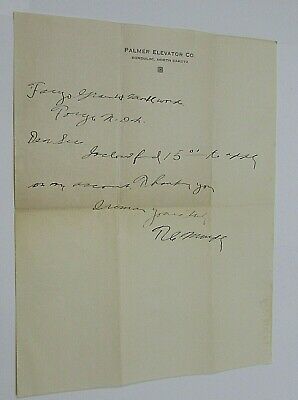 PALMER ELEVATOR CO
BORDULAC, NORTH DAKOTA
Fargo Granite &
Fargo N. Dak.
Dear Sir
Inclosed find 15 00 to apply
on my account. Thanking you
I remain yours truly